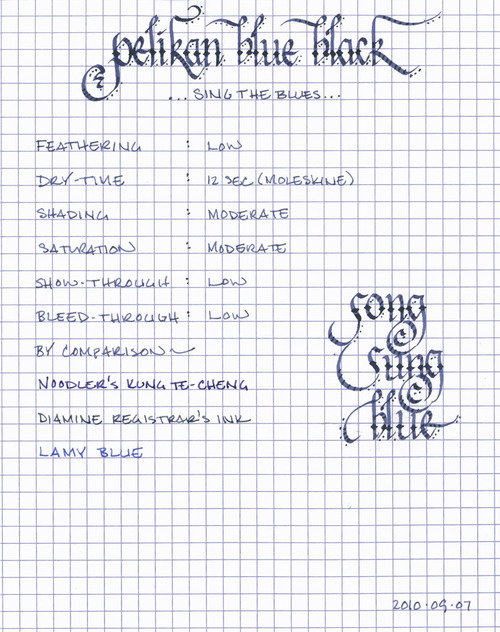 pelikan blue black
...SING THE BLUES...
FEATHERING : LOW
DRY-TIME : 12 SEC (MOLESKINE)
SHADING : MODERATE
SATURATION : MODERATE
SHOW-THROUGH : LOW
BLEED-THROUGH : LOW
BY COMPARISON~
NOODLER'S KUNG TE-CHENG
DIAMINE REGISTRAR'S INK
LAMY BLUE
song
sung
blue
2010.09.07